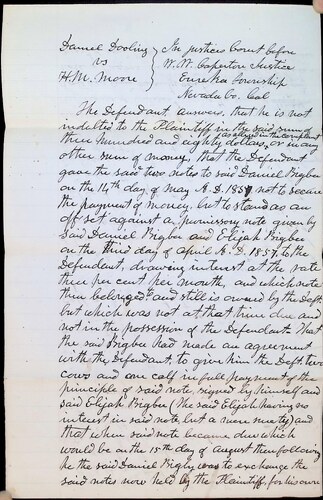 Daniel Dooling } In justices Court before
vs } W. W. Caperton Justice
H. M. Moore } Eureka Township
Nevada Co. Cal
The Defendant, answers, that he is not
indebted to the Plaintiff in the said sum of
as alleged in the complaint
three hundred and eighty dollars, or in any
other sum of money, that the Defendant
gave the said two notes to said Daniel Bigbee
on the 14th day of May A.D. 1857 not to secure
the payment of money, but to stand as an
off set against a promissory note given by
said Daniel Bigbee and Elijah Bigbee
on the third day of April A.D. 1857, to the
Defendant, drawing interest at the rate
three per cent per month, and which note
then belonged and still is owned by the Deft.
but which was not at that time due and
not in the possession of the Defendant. That
the said Bigbee had made an agreement
with the Defendant, to give him the Deft. two
cows and one calf in full payment of the
principle of said note signed by himself and
said Elijah Bigbee (the said Elijah having no
interest in said note but a mere surety) and
that when said note became due which
would be on the 15th day of August then following
he the said Daniel Bigby was to exchange the
said notes now held by the Plaintiff, for his own